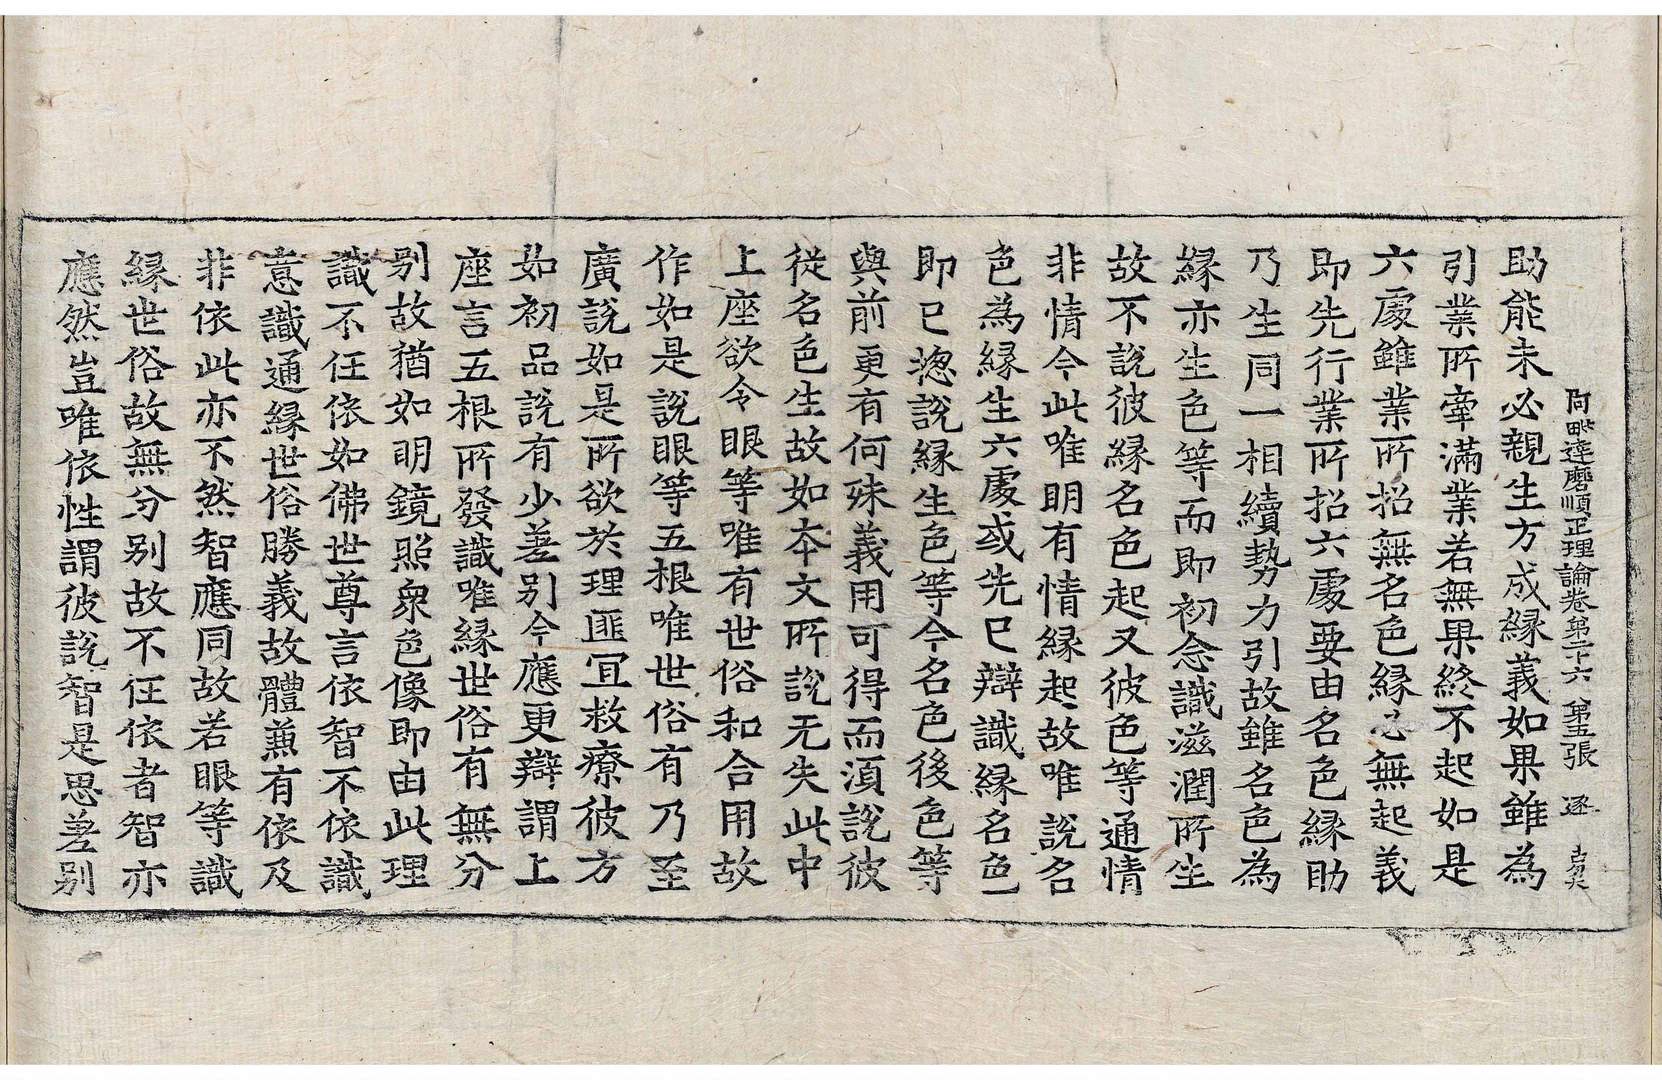 阿毗達磨順正理論卷第二十六　第五張　逐
助能未必親生方成緣義如果雖為
引業所牽滿業若無果終不起如是
六處雖業所招無名色緣必無起義
即先行業所招六處要由名色緣助
乃生同一相續勢力引故雖名色為
緣亦生色等而即初念識滋潤所生
故不說彼緣名色起又彼色等通情
非情今此唯明有情緣起故唯說名
色為緣生六處或先已辯識緣名色
即已揔說緣生色等今名色後色等
與前更有何殊義用可得而湏說彼
從名色生故如夲文所說无失此中
上座欲令眼等唯有世俗和合用故
作如是說眼等五根唯世俗有乃至
廣說如是所欲於理匪冝救療彼方
如初品說有少差別今應更辯謂上
座言五根所發識唯緣世俗有無分
別故猶如明鏡照衆色像即由此理
識不任依如佛世尊言依智不依識
意識通緣世俗勝義故體兼有依及
非依此亦不然智應同故若眼等識
緣世俗故無分別故不任依者智亦
應然豈唯依性謂彼說智是思差別